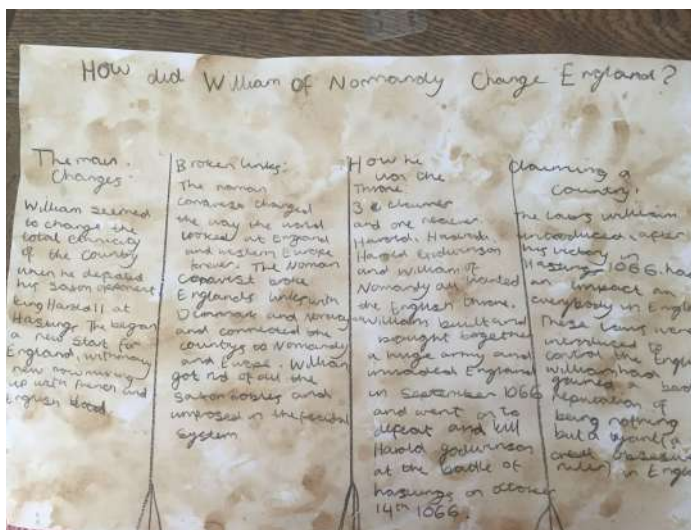 How did William of Normandy Change England?
The main
Changes:
William seemed
to change the
total ethnicity
of the country
when he defeated
his saxon opponent
king Harold II at
Hastings. The began
a new start for
England, with many
new now mixing
up with french and
English blood.
Broken links:
The norman
Conquest changed
the way the world
looked at England
and western Europe
forever. The Norman
Conquest broke
Englands links with
Denmark and norway
and connected the
country to Normandy
and Europe. William
got rid of all the
saxon nobles and
imposed in the feudal
system
How he
won the
Throne:
3
and one
Harold,
Harold Godwinson
and William of
Normandy all wanted
the English throne.
William built and
brought together
a huge army and
invaded England
in september 1066
and went on to
defeat and kill
Harold godwinson
at the badle of
hastings on october
14th 1066.
claiming a
country.
The laws william
introduced, after
his victory in
Hastings 1066. had
an impact on
everybody in Engl
These laws were
introduced to
control the Englis
william had
gained a bad
reputation of
being nothing
but a tyant (a
cruel
ruler) in Engl